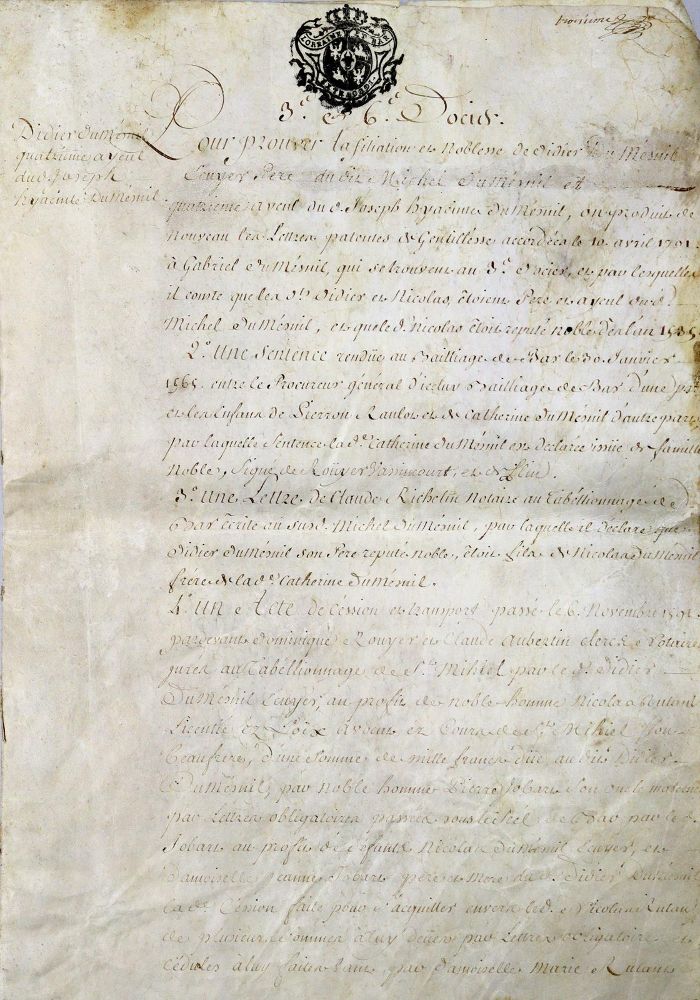 troisieme
LORRAINE ET BAR
EXTRAORDI
3.e et 6.e Docier.
Didier DuMénil
quatrieme ayeul
du d. Joseph
hyacinte DuMénil
Pour prouver la filiation et Noblesse de Didier Du Ménil
Ecuyer Pere dudit Michel DuMénil et
quatrieme ayeul du d. Joseph hyacinte DuMénil, on produit de
nouveau les Lettres patentes de Gentillesse accordées le 10 avril
à Gabriel DuMénil, qui se trouvent au 3.e Docier, et par lesquelles
il conste que les S.rs Didier et Nicolas, étoient Pere et ayeul dud.
Michel DuMénil, et que le d. Nicolas étoit reputé noble dez l'an 1535
2.o Une Sentence rendüe au Bailliage de Bar le 30 Janvier
1565. entre le Procureur général d'iceluy Bailliage de Bar d'une part
et les Enfans de Pierron Raulot et de Catherine DuMénil d'autre part
par laquelle Sentence la d.e Catherine DuMénil est declarée issüe de famille
Noble, Signé de Rouyer et
3.o Une Lettre de Claude Richelin notaire au Tabéllionnage de
Bar Ecrite au susd. Michel DuMénil, par laquelle il declare que
Didier DuMénil son Pere reputé noble, étoit fils de Nicolas DuMénil
frere de la d.e Catherine DuMénil.
4.o Un Acte de Céssion et transport passé le 6. Novembre
pardevant Dominique Rouyer et Claude Aubertin clerck Notaires
jurez au Tabéllionnage de S.t Mihiel par le d. Didier
DuMénil Ecuyer, au profit de noble homme Nicolas Rutant
Licentié ez Loix avocat ez Cours de S.t Mihiel Son
Beaufrere, d'une somme de mille francs düe, au dit Didier
DuMénil, par noble homme Pierre Jobart Son oncle
par Lettres obligatoires passées sous le Scel de Bar par le d.
Jobart au profit de defunts Nicolas DuMénil Ecuyer, et
Damoiselle Jeanne Jobart pere et Mere du d. Didier DuMénil
la d.e Céssion faite pour s'acquitter envers le d. Nicolas Rutant
de plusieurs Sommes à luy deües par Lettres obligatoires et
Cédules à luy faites tant par Damoiselle Marie Rutant